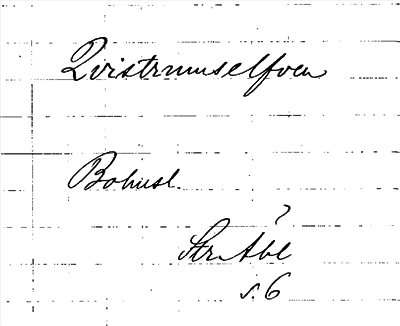 Qvistrumselfven
Bohusl.
?
Str. Åbl
s. 6